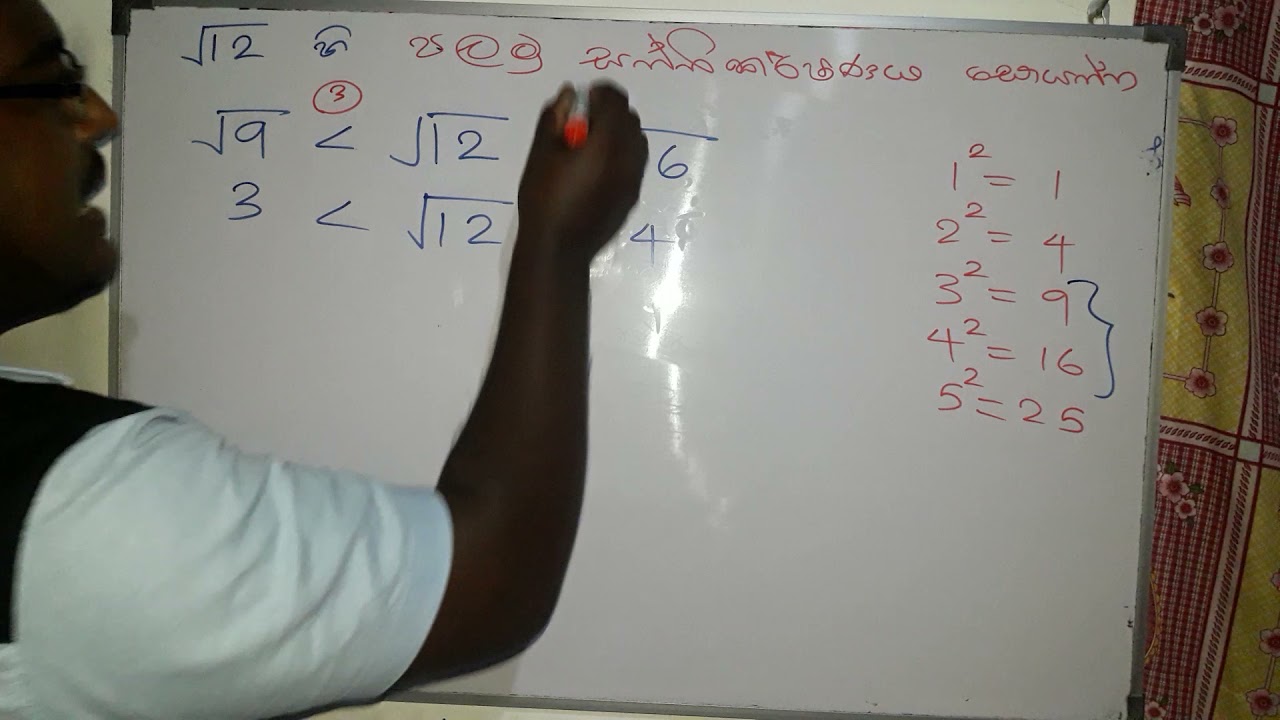 √12 හි පලමු සන්නිකර්ෂණය සොයන්න
③
√9 < √12 6
3 < √12 4
1² = 1
2² = 4
3² = 9
4² = 16
5² = 25